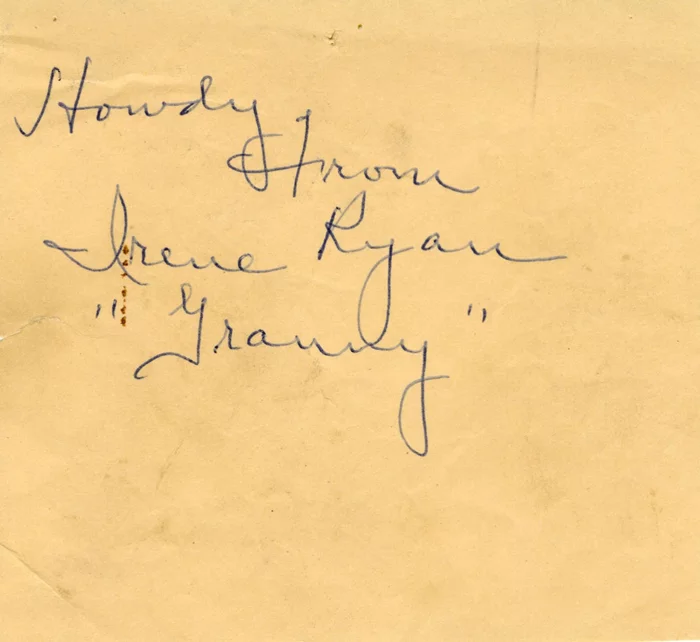 Howdy
From
Irene Ryan
"Granny"